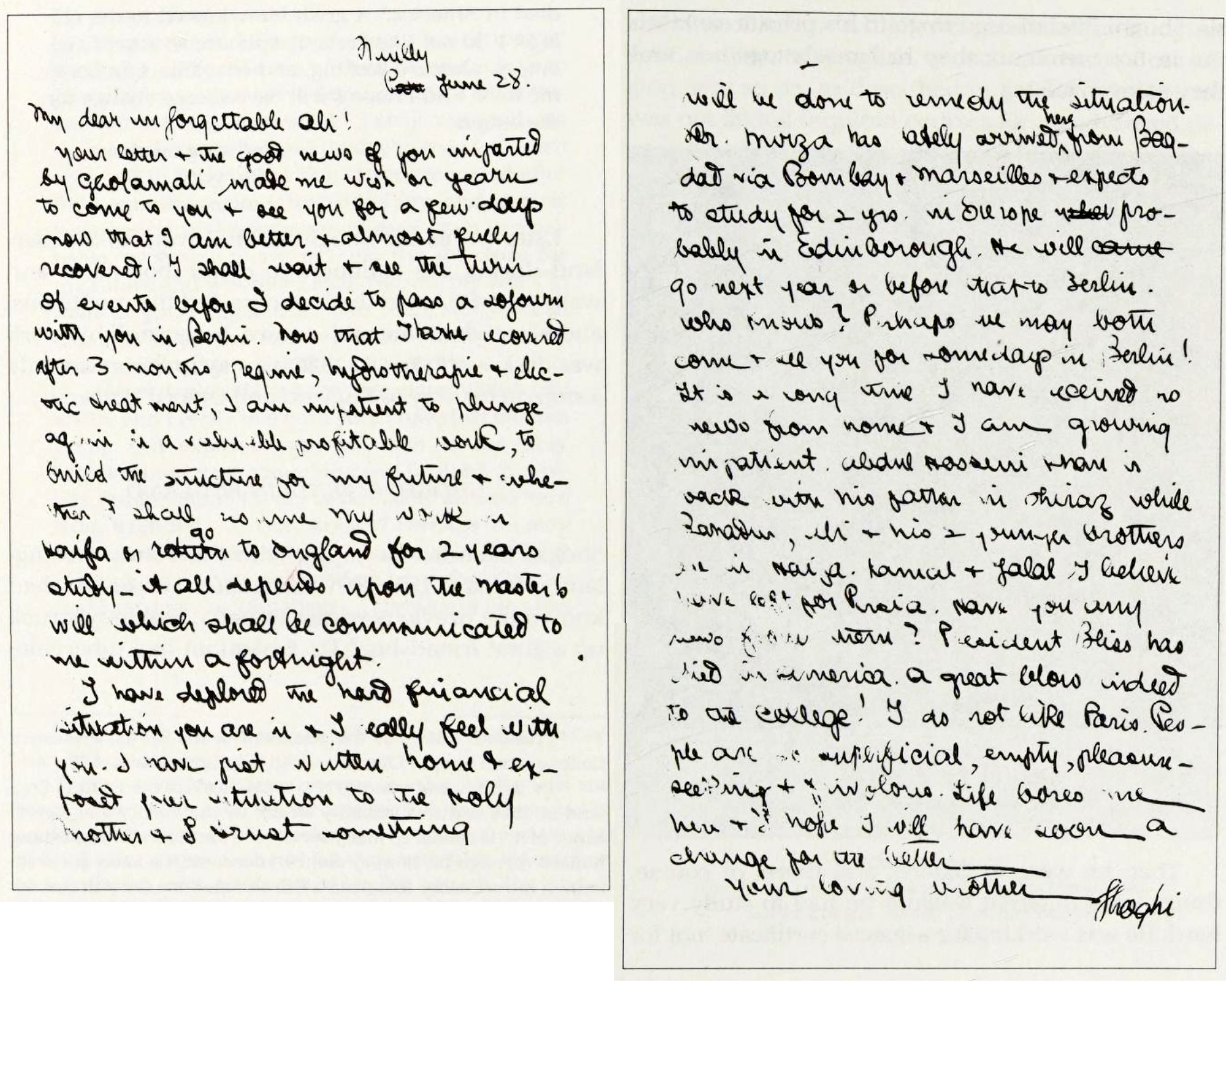 Neuilly
June 28.
My dear unforgettable Ali!
Your letter & the good news of you imparted
by Gholamali make me wish or yearn
to come to you & see you for a few days
now that I am better & almost fully
recovered! I shall wait & see the turn
of events before I decide to pass a sojourn
with you in Berlin. Now that I have recovered
after 3 months regime, hydrotherapie & elec-
tric treatment, I am impatient to plunge
again in a valuable profitable work, to
build the structure for my future & whe-
ther I shall resume my work in
Haifa or go to England for 2 years
study - it all depends upon the Master's
will which shall be communicated to
me within a fortnight.
I have deplored the hard financial
situation you are in & I really feel with
you. I have just written home & ex-
posed your situation to the Holy
Mother & I trust something
will be done to remedy the situation.
Dr. Mirza has lately arrived here from Bag-
dad via Bombay & Marseilles & expects
to study for 2 yrs. in Europe pro-
bably in Edinborough. He will
go next year or before that to Berlin.
Who knows? Perhaps we may both
come & see you for some days in Berlin!
It is a long time I have received no
news from home & I am growing
impatient. Abdul Hossein Khan is
back with his father in Shiraz while
, Ali & his 2 younger brothers
are in Haifa. Kamal & Jalal I believe
have left for Persia. Have you any
news from them? President Bliss has
died in America. A great blow indeed
to the college! I do not like Paris. Peo-
ple are so superficial, empty, pleasure-
seeking & frivolous. Life bores me
here & I hope I will have soon a
change for the better
Your loving brother Shoghi